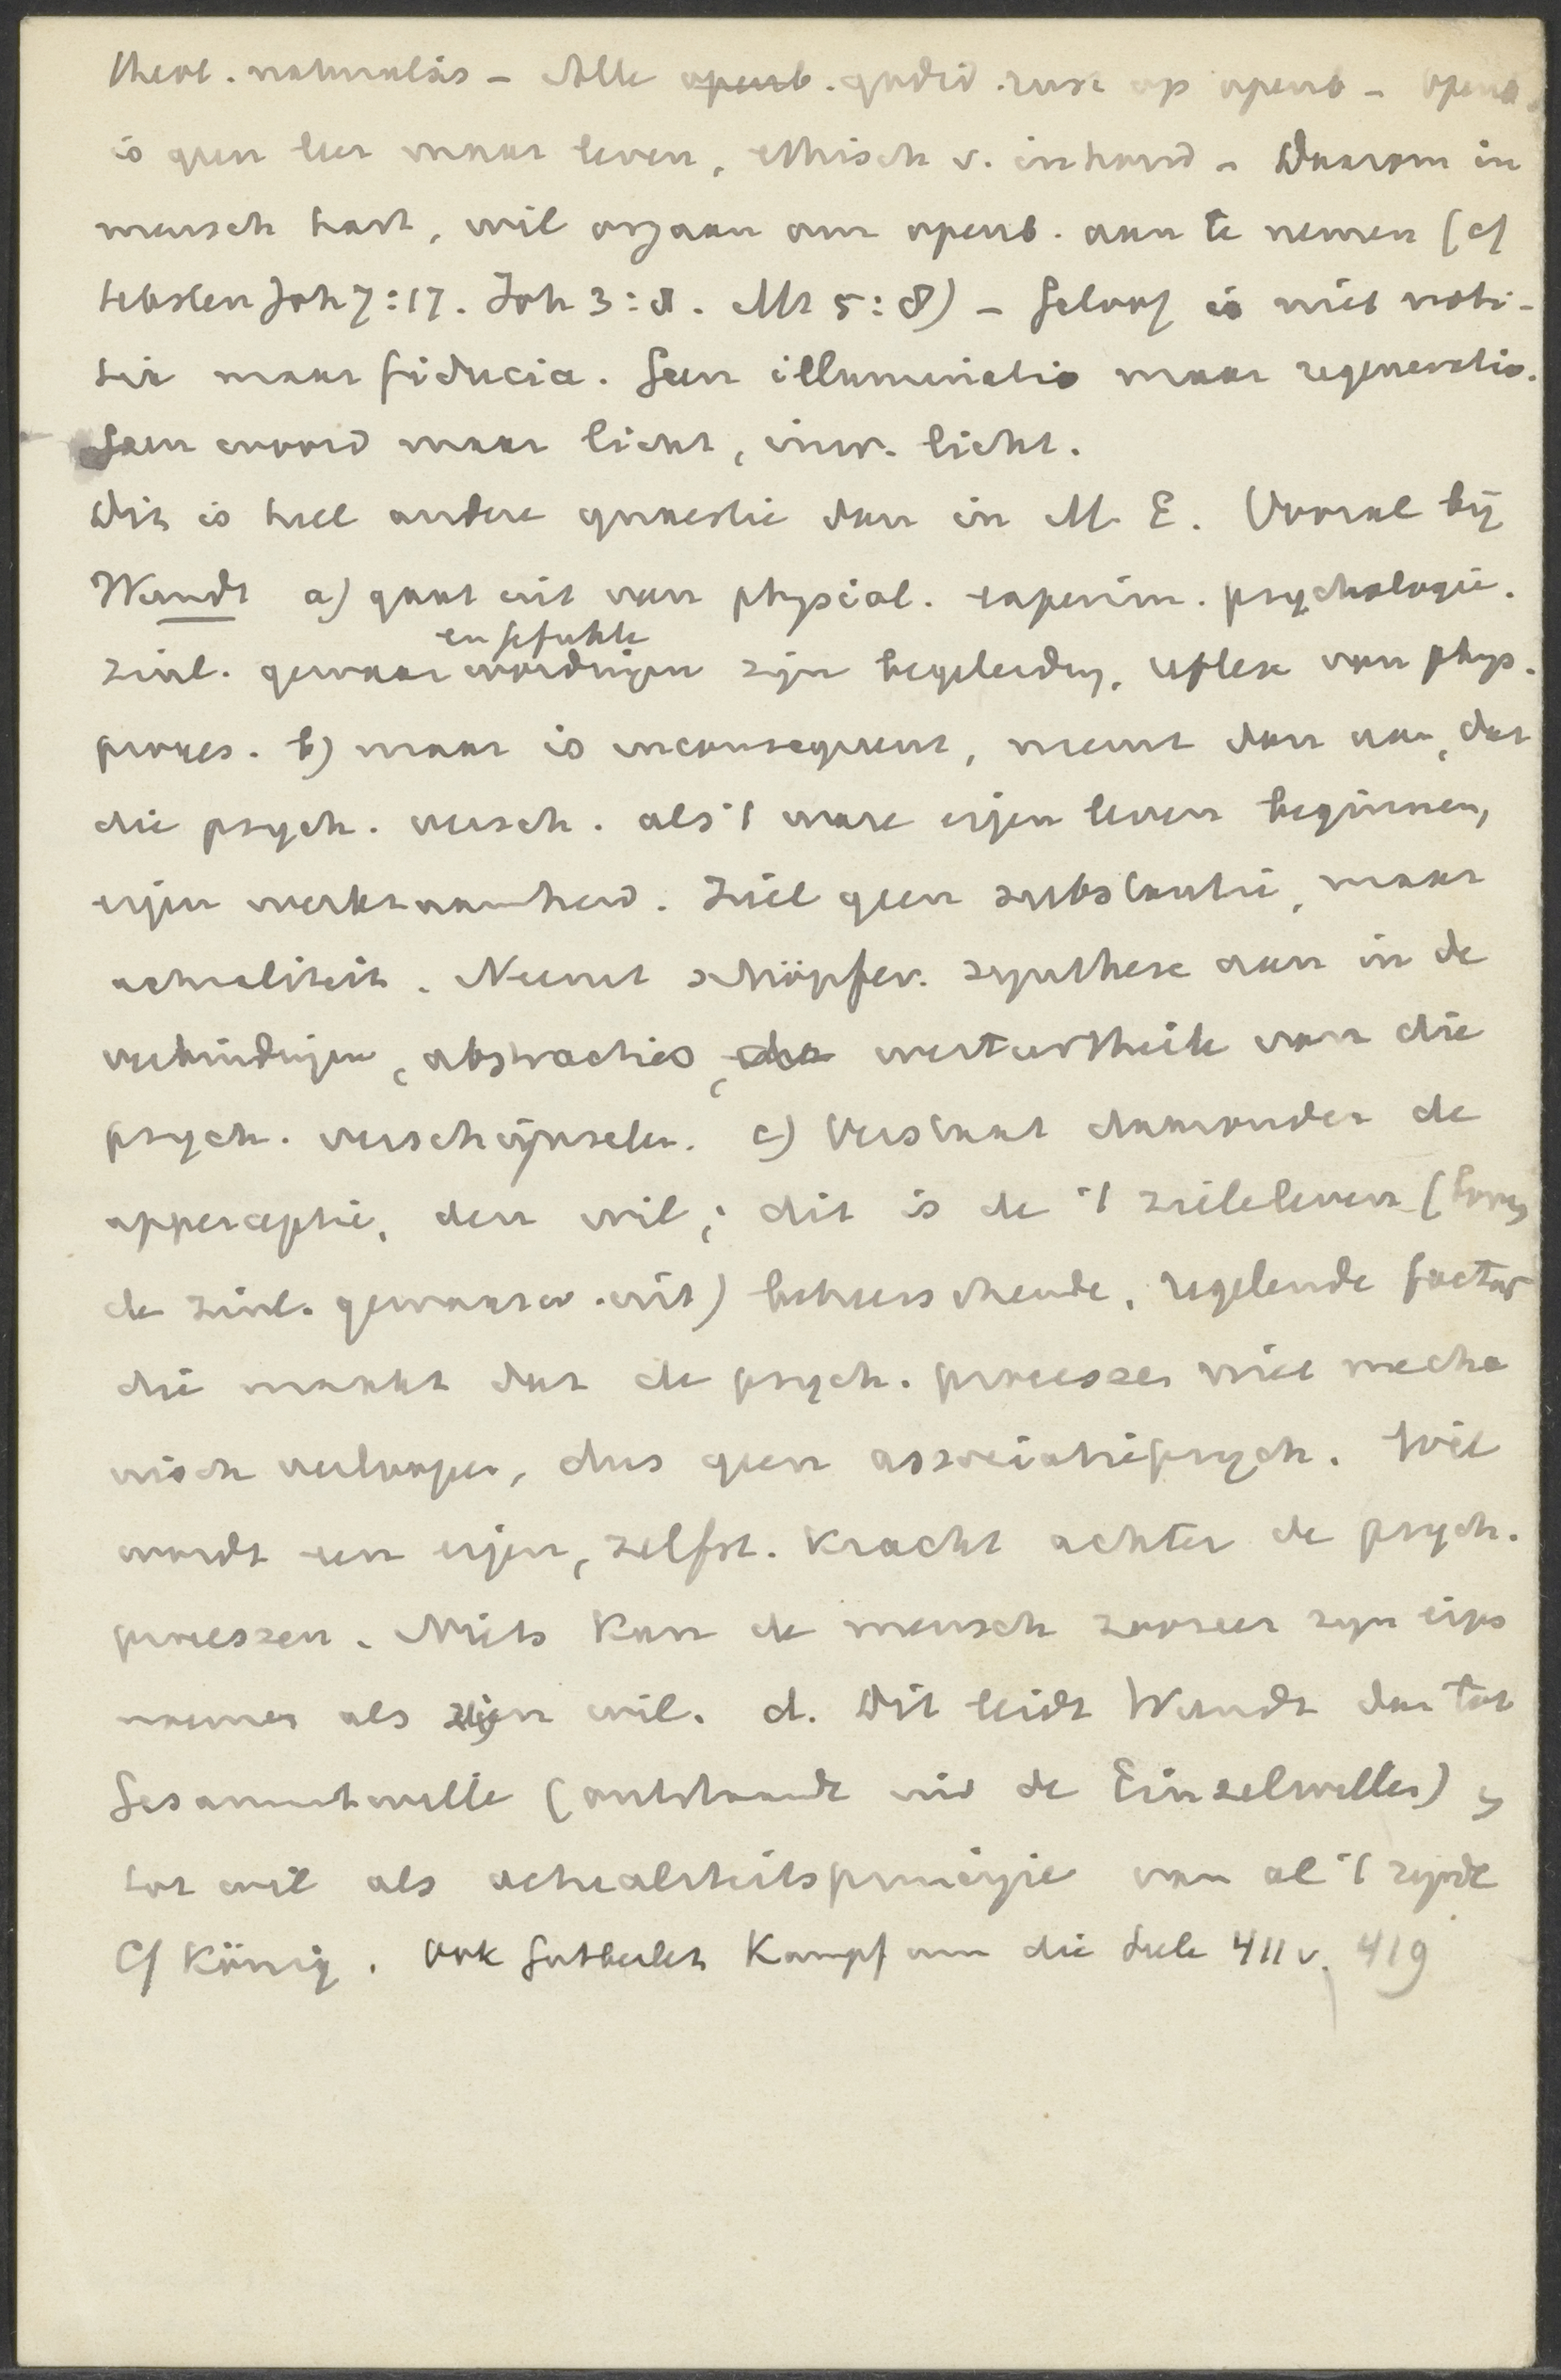 theol. naturalis – Alle openb. godsd. rust op openb – openb.
is geen leer maar leven, ethisch v. inhoud – Daarom in
mensch hart, wil orgaan om openb. aan te nemen (cf
teksten Joh 7:17. Joh 3:8. Mt 5:8) – Geloof is niet noti-
tie maar fiducia. Geen illuminatio maar regeneratio.
Geen woord maar licht, inw. licht.
Dit is heel andere quaestie dan in M. E. Vooral bij
Wundt a) gaat uit van physiol. experim. psychologie.
en gefuhle
zinl. gewaarwordingen zijn begeleidg, reflex van phys.
proces. b) maar is inconsequent, neemt dan aan, dat
die psych. versch. als 't ware eigen leven beginnen,
eigen werkzaamheid. Ziel geen substantie, maar
actualiteit. Neemt schöpfer. synthese aan in de
verbindingen, abstracties, werturtheile van die
psych. verschijnselen. c) Verstaat daaronder de
apperceptie, den wil; dit is de 't zieleleven (boven
de zinl. gewaarw. uit) beheerschende, regelende factor
die maakt dat de psych. processen niet mecha
nisch verloopen, dus geen associatiepsych. Wil
wordt een eigen, zelfst. kracht achter de psych.
processen. Niets kan de mensch zoozeer zijn eigs
noemen als zijn wil. d. Dit leidt Wundt dan tot
Gesammtwille (ontstaande uit de Einzelwillen) en
tot wil als actualiteitsprincipe van al 't zijnde
Cf König. Ook Gutberlet Kampf um die Seele 411 v. 419